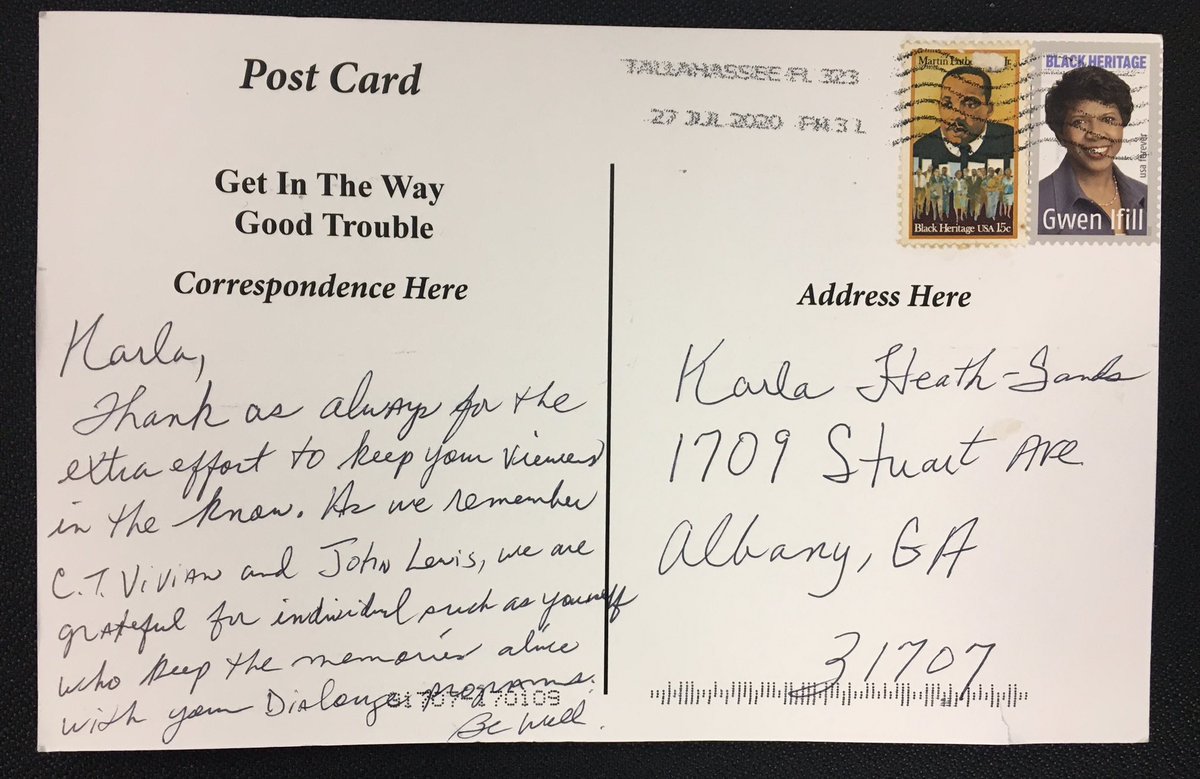 Post Card
TALLAHASSEE FL 323
27 JUL 2020 PM 3 L
Martin Luth Jr.
Black Heritage USA 15c
BLACK HERITAGE
usa forever
Gwen Ifill
Get In The Way
Good Trouble
Correspondence Here
Karla,
Thank as always for the
extra effort to keep your viewers
in the know. As we remember
C.T. Vivian and John Lewis, we are
grateful for individul such as yourself
who keep the memories alive
with your Dialouge programs.
Be Well.
31707-170109
Address Here
Karla Heath-Sands
1709 Stuart Ave
Albany, GA
31707